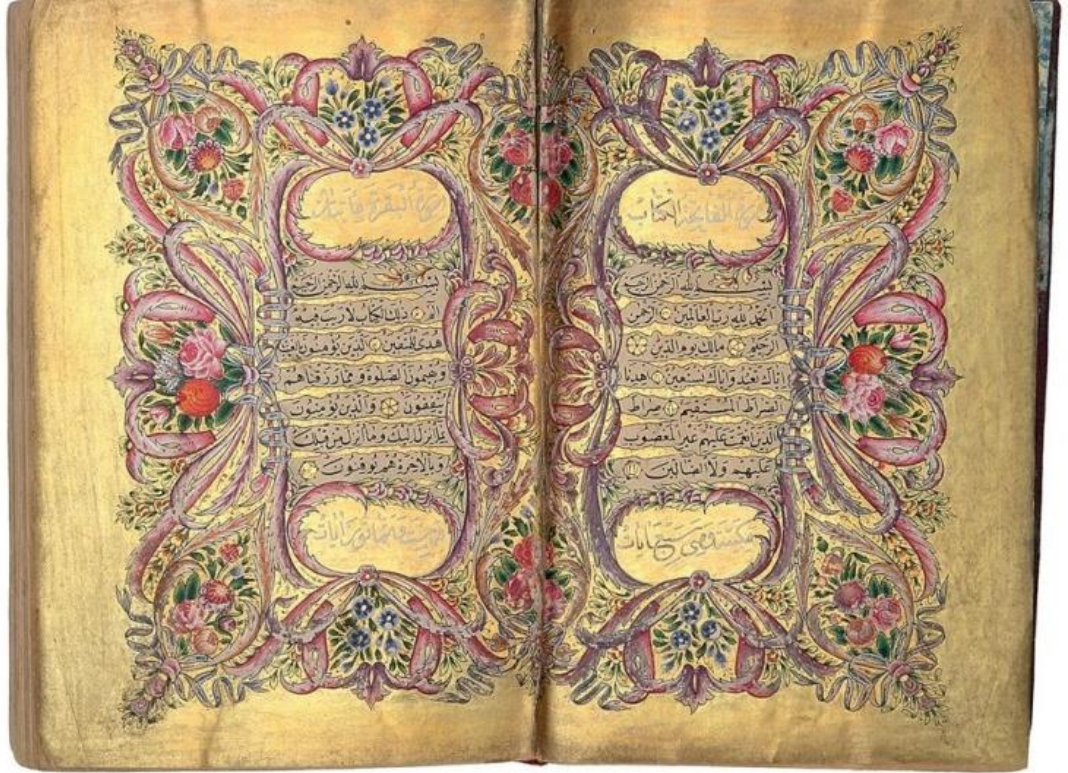 سورة الفاتحة الكتاب
بسم الله الرحمن الرحيم
الحمد لله رب العالمين الرحمن
الرحيم مالك يوم الدين
اياك نعبد واياك نستعين اهدنا
الصراط المستقيم صراط
الذين انعمت عليهم غير المغضوب
عليهم ولا الضالين
مكية وهي سبع ايات
سورة البقرة مائتان
بسم الله الرحمن الرحيم
الم ذلك الكتاب لا ريب فيه
هدى للمتقين الذين يؤمنون بالغيب
ويقيمون الصلوة ومما رزقناهم
ينفقون والذين يؤمنون
بما انزل اليك وما انزل من قبلك
وبالاخرة هم يوقنون
وست وثمانون ايات